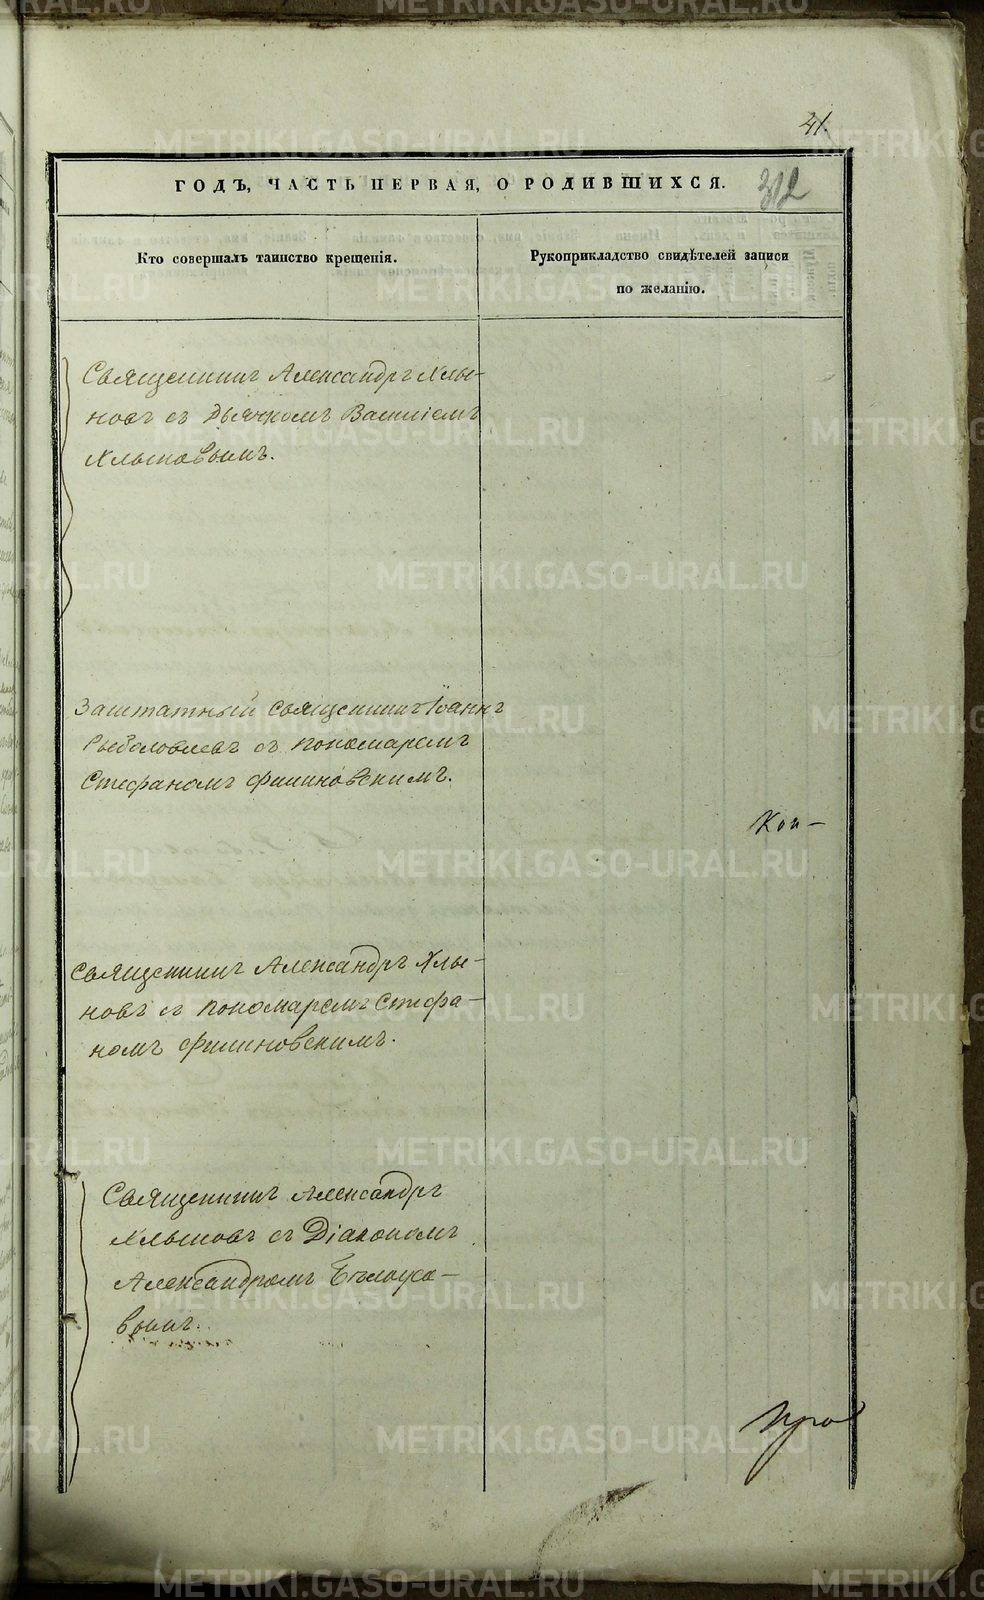 41.
ГОДЪ, ЧАСТЬ ПЕРВАЯ, О РОДИВШИХСЯ.
312
Кто совершалъ таинство крещенія.
Рукоприкладство свидѣтелей записи
по желанію.
Священникъ Александръ Хлы-
новъ съ Дьячкомъ Василіемъ
Хлыновымъ.
Заштатный священникъ Іоаннъ
Рыболовлевъ съ пономаремъ
Стефаномъ Филиновскимъ.
Коп-
священникъ Александръ Хлы-
новъ съ пономаремъ Стефа-
номъ Филиновскимъ.
Священникъ Александръ
Хлыновъ съ Діакономъ
Александромъ Бѣлоусо-
вымъ.
METRIKI.GASO-URAL.RU